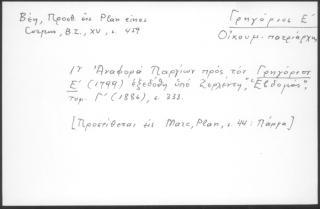 Βέη, Προσθ. εἰς Plan eines
Corpus, B.Z., XV, σ. 459
Γρηγόριος Ε΄
Οἰκουμ. πατριάρχης
Ἀναφορὰ Παργίων πρὸς τὸν Γρηγόριον
Ε΄ (1799) ἐξεδόθη ὑπὸ Ζερλέντη, "Ἑβδομάς",
τομ. Γ΄ (1886), σ. 333.
[Προστίθεται εἰς Marc, Plan, σ. 44: Πάργα]